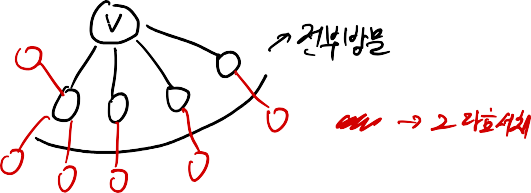 V
→ 전부방문
→ 그 다음서치